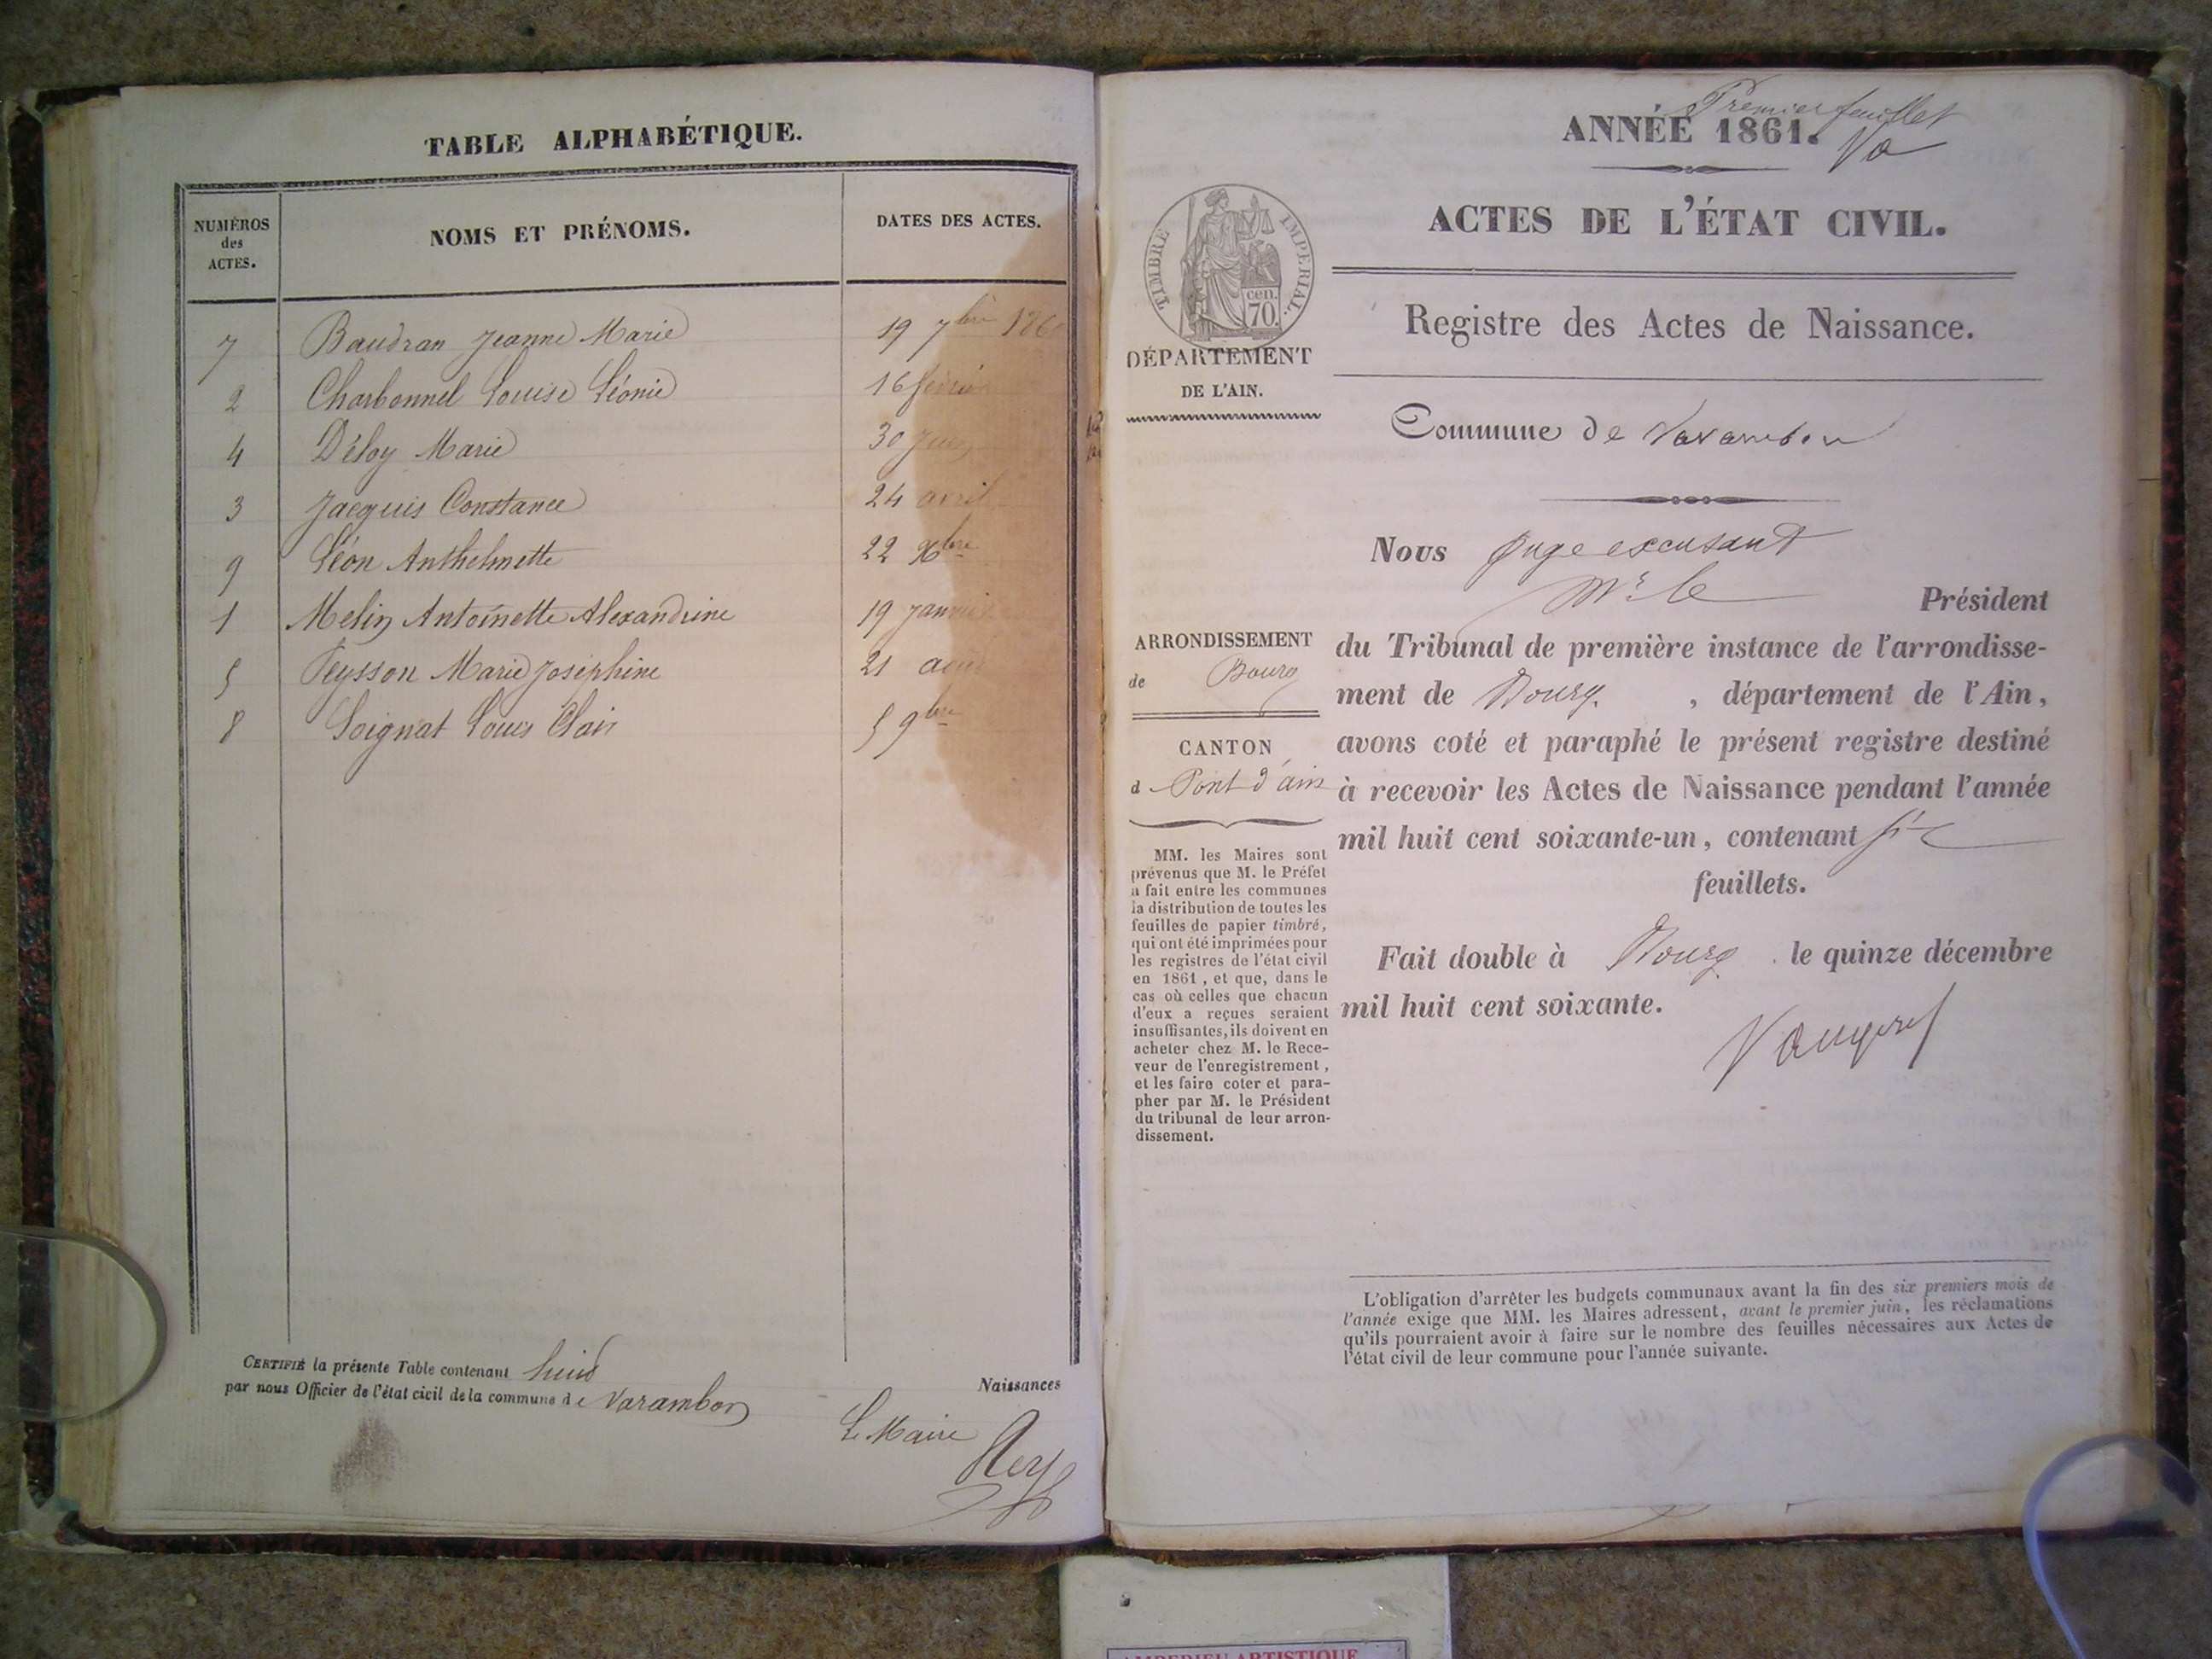 TABLE ALPHABÉTIQUE.
NUMÉROS
des
ACTES.
NOMS ET PRÉNOMS.
DATES DES ACTES.
7 Baudran Jeanne Marie 19 7bre 1860
2 Charbonnel Louise Léonie 16 février
4 Déloy Marie 30 Juin
3 Jacquis Constance 24 avril
9 Léon Anthelmette 22 Xbre
1 Melin Antoinette Alexandrine 19 Janvier
5 Teysson Marie Joséphine 21 août
8 Soignat Louis Clair 5 9bre
CERTIFIÉ la présente Table contenant huit Naissances
par nous Officier de l'état civil de la commune de Varambon
Le Maire
Premier feuillet
ANNÉE 1861.
Va
ACTES DE L'ÉTAT CIVIL.
TIMBRE IMPÉRIAL.
cen.
70.
Registre des Actes de Naissance.
DÉPARTEMENT
DE L'AIN.
Commune de Varambon
Nous Juge excusant
Mr. le Président
du Tribunal de première instance de l'arrondisse-
ment de Bourg. , département de l'Ain,
avons coté et paraphé le présent registre destiné
à recevoir les Actes de Naissance pendant l'année
mil huit cent soixante-un, contenant six
feuillets.
Fait double à Bourg. le quinze décembre
mil huit cent soixante.
ARRONDISSEMENT
de Bourg
CANTON
d Pont d'ain
MM. les Maires sont
prévenus que M. le Préfet
a fait entre les communes
la distribution de toutes les
feuilles de papier timbré,
qui ont été imprimées pour
les registres de l'état civil
en 1861, et que, dans le
cas où celles que chacun
d'eux a reçues seraient
insuffisantes, ils doivent en
acheter chez M. le Rece-
veur de l'enregistrement,
et les faire coter et para-
pher par M. le Président
du tribunal de leur arron-
dissement.
L'obligation d'arrêter les budgets communaux avant la fin des six premiers mois de
l'année exige que MM. les Maires adressent, avant le premier juin, les réclamations
qu'ils pourraient avoir à faire sur le nombre des feuilles nécessaires aux Actes de
l'état civil de leur commune pour l'année suivante.
AMBERIEU ARTISTIQUE